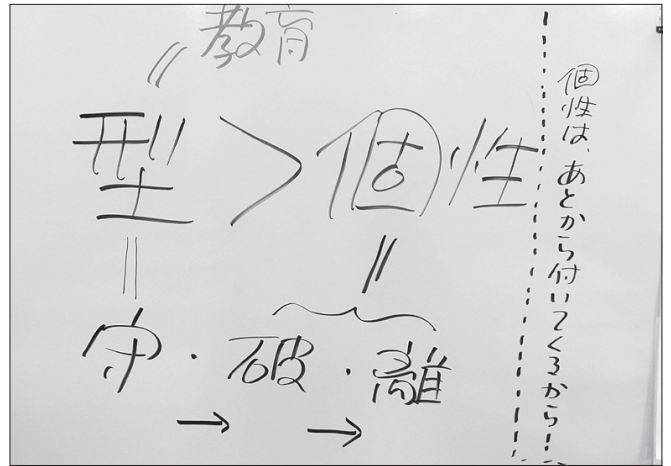 教育
=
型 > 個性
= =
守・破・離
→ →
個性は、あとから付いてくるから!